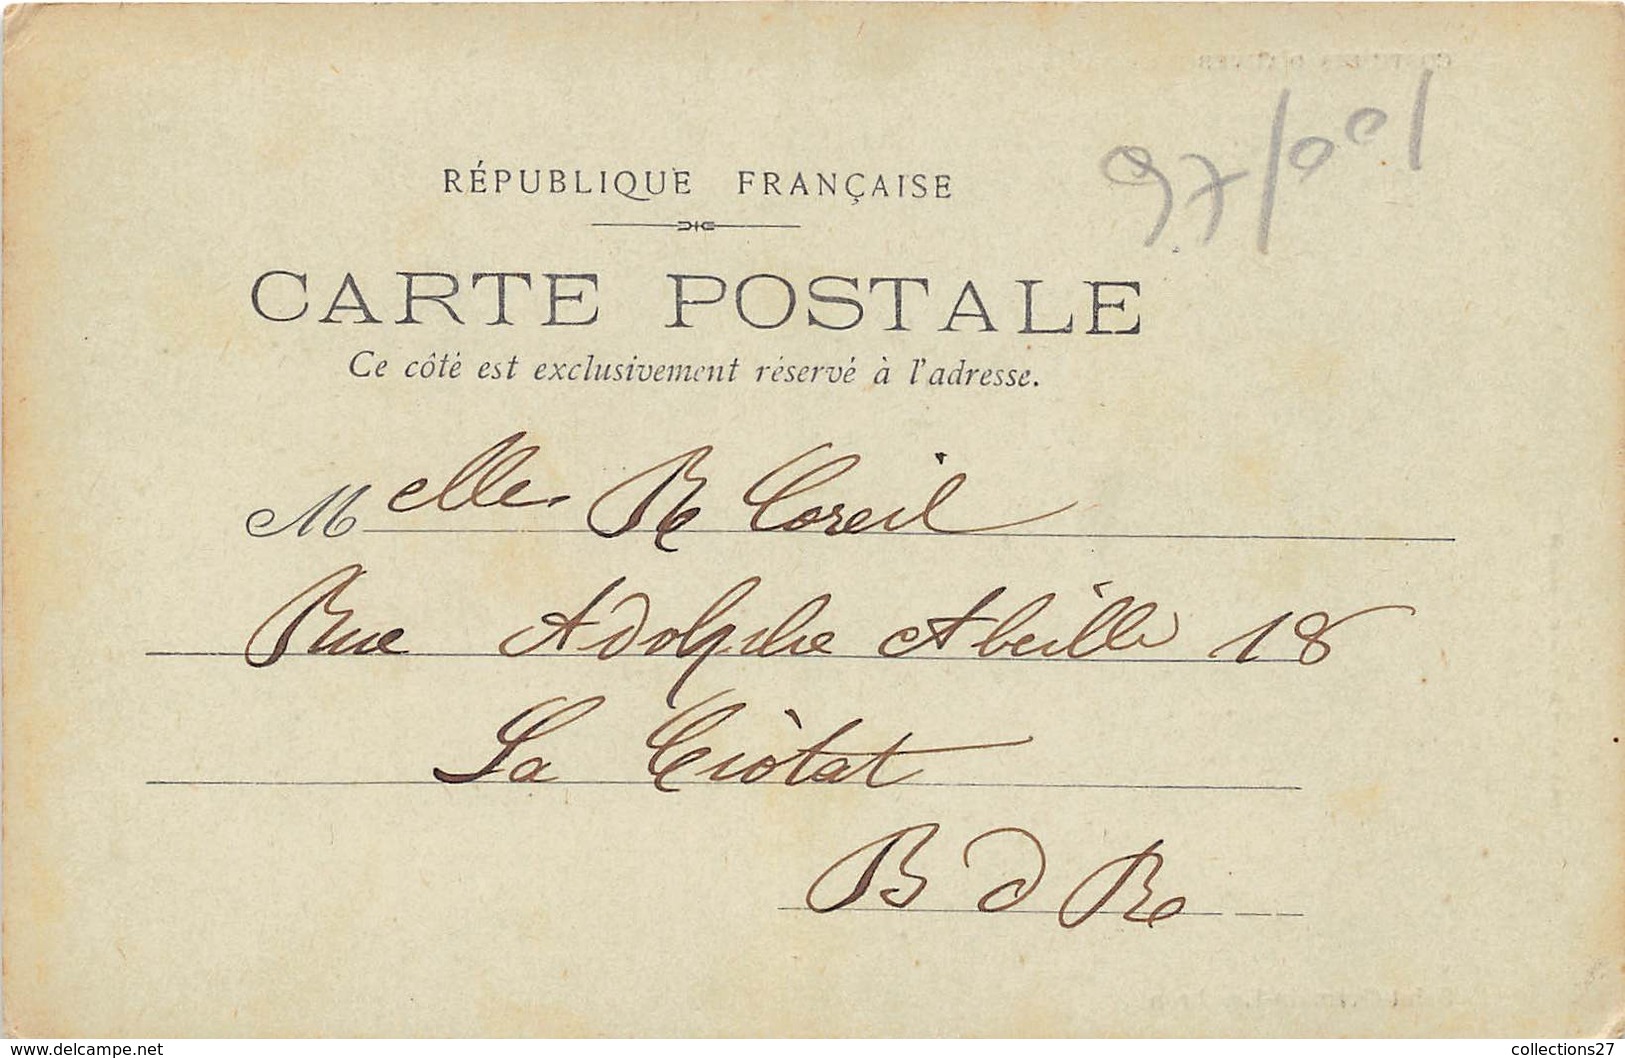 97/001
RÉPUBLIQUE FRANÇAISE
CARTE POSTALE
Ce côté est exclusivement réservé à l'adresse.
Melle R Coreil
Rue Adolphe Abeille 18
La Ciòtat
B d R
www.delcampe.net
collections27